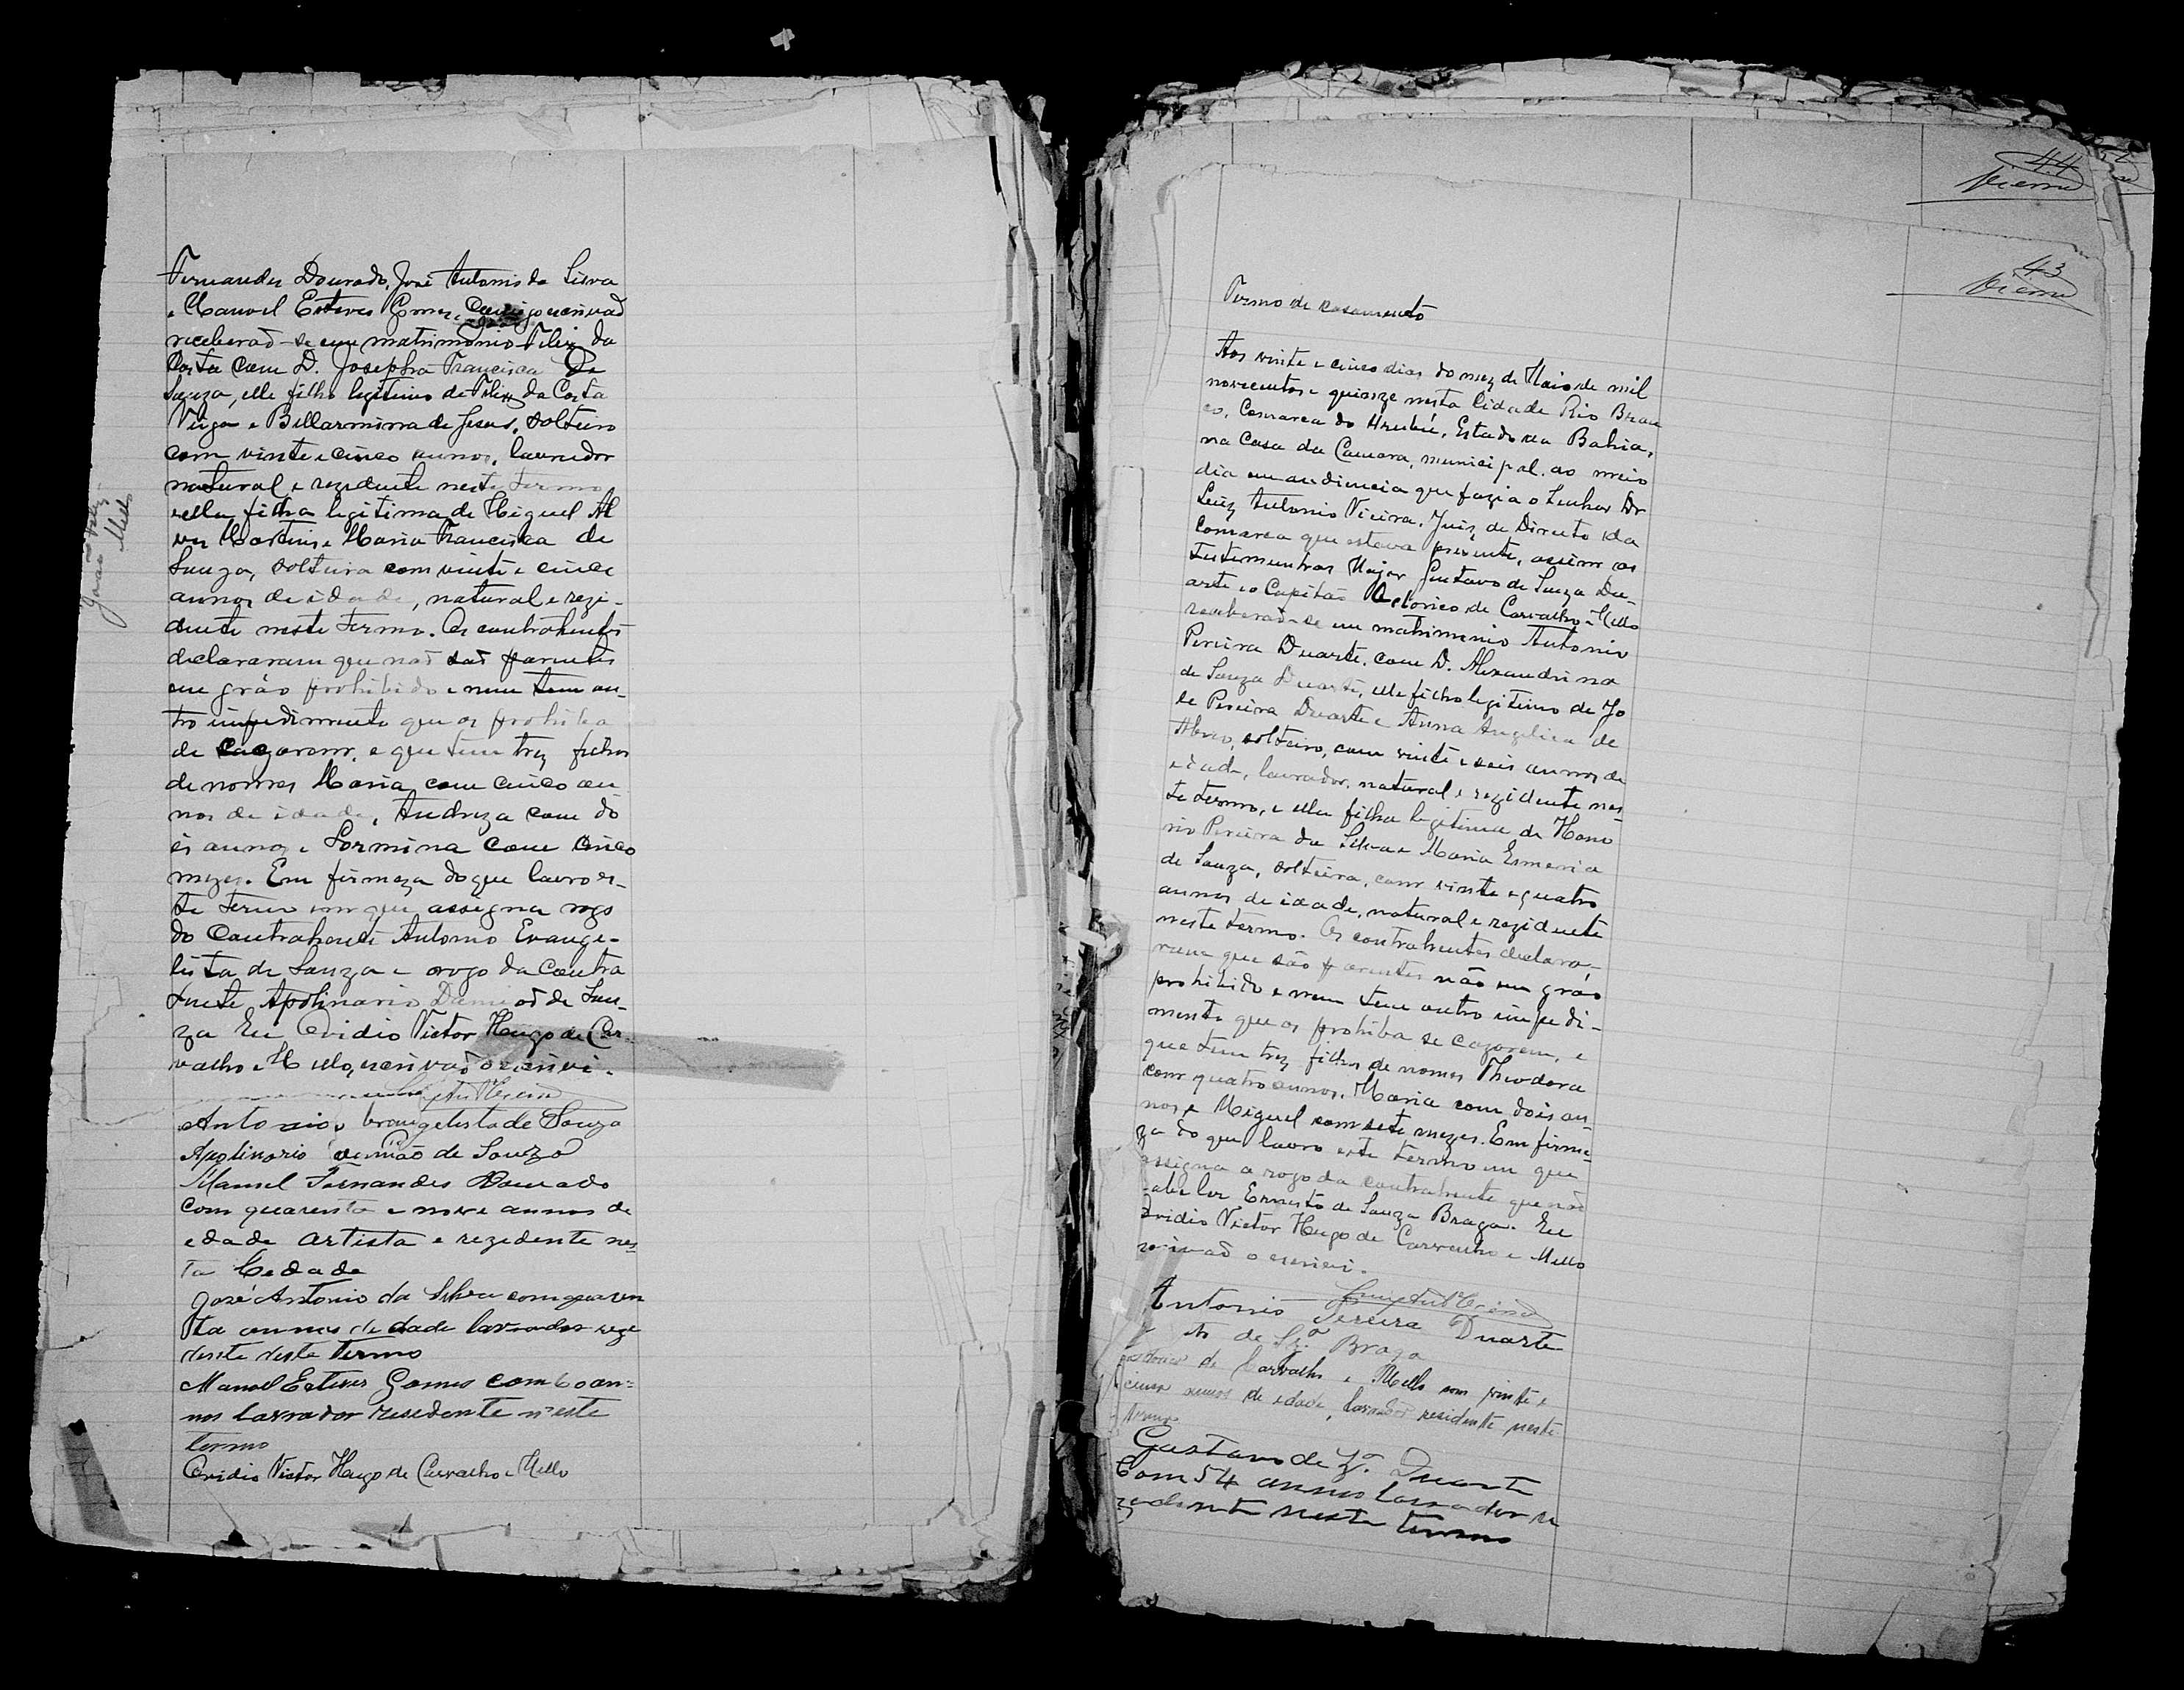 Fernandes Dourado, José Antonio da Silva
e Manoel Esteves Gomes, comigo escrivaõ
receberaõ-se em matrimonio Felix da
Costa com D. Josepha Francisca de
Souza, elle filho legitimo de Felix da Costa
Veiga e Bellarmina de Jesus, solteiro
com vinte e cinco annos, lavrador
natural e rezidente neste termo
e ella filha legitima de Miguel Al
ves Martins e Maria Francisca de
Souza, solteira com vinte e cinco
annos de idade, natural e rezi-
dente neste termo. Os contrahentes
declararam que naõ saõ parentes
em gráo prohibido e nem tem ou-
tro impedimento que os prohiba
de cazarem, e que tem trez filhos
de nomes Maria com cinco an-
nos de idade, Andreza com do
is annos e Sormina com cinco
mezes. Em firmeza do que lavro es-
te termo em que assigna rogo
do contrahente Antonio Evange-
lista de Souza e arogo da contra
hente Apolinario Damiaõ de Sou-
za Eu Ovidio Victor Hugo de Car-
valho e Mello, escrivaõ o escrevi.
Antonio Evangelista de Souza
Apolinario Damião de Souza
Manoel Fernandes Dourado
com quarenta e nove annos de
edade artista e rezedente nes-
ta Cedade
José Antonio da Silva com quaren
ta annos de edade lavrador reze
dente deste termo
Manoel Esteves Gomes com 60 an=
nos lavrador resedente n'este
termo
Ovidio Victor Hugo de Carvalho e Mello
Mello
44
Vieira
43
Vieira
Termo de casamento
Aos vinte e cinco dias do mez de Maio de mil
novecentos e quinze nesta Cidade Rio Bran
co, Comarca do Urubú, Estado da Bahia,
na Casa da Camara, municipal, ao meio
dia em audiencia que fazia o Senhor Dr
Luiz Antonio Vieira, Juiz de Direito da
Comarca que estava presente, assim as
testemunhas Major Gustavo de Souza Du-
arte e o Capitão de Carvalho e Mello
receberaõ-se em matrimonio Antonio
Pereira Duarte, com D. Alexandrina
de Souza Duarte, elle filho legitimo de Jo
sé Pereira Duarte e Anna Angelica de
Abreo, solteiro, com vinte e seis annos de
idade, lavrador, natural e rezidente nes-
te termo, e ella filha legitima de Hono
rio Pereira da Silva e Maria Esmeria
de Souza, solteira, com vinte e quatro
annos de idade, natural e rezidente
neste termo. Os contrahentes declara-
ram que são parentes não em gráo
prohibido e nem tem outro impedi-
mento que os prohiba se cazarem, e
que tem trez filhos de nomes Theodora
com quatro annos, Maria com dois an-
nos, e Miguel com sete mezes. Em firme-
za do que lavro este termo em que
assigna a rogo da contrahente que naõ
sabe ler Ernesto de Souza Braga. Eu
Ovidio Victor Hugo de Carvalho e Mello
escrivaõ o escrevi.
Antonio Pereira Duarte
de Sz.ª Braga
de Carvalho e Mello com vinte e
cinco annos de edade, lavrador residente neste
termo
Gustavo de Sz.ª Duarte
Com 54 annos lavrador re
zedente neste termo